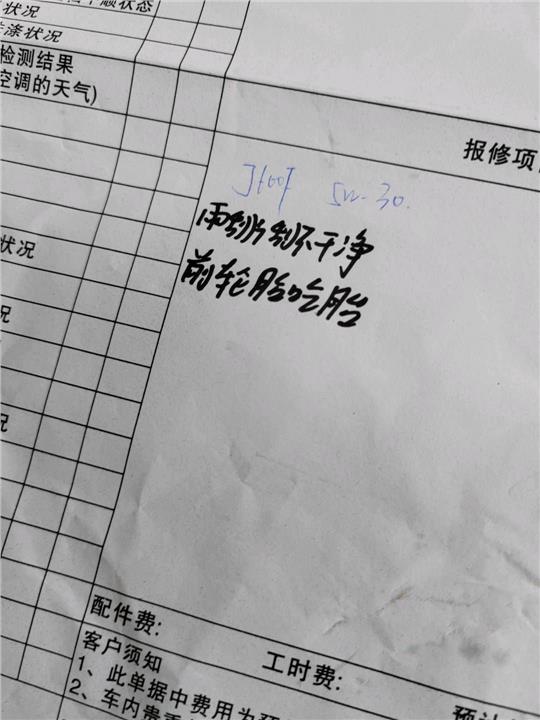 顺状态
状况
漆状况
检测结果
空调的天气)
报修项
5W-30.
雨刮片刮不干净
前轮胎吃胎
状况
况
况
配件费:
工时费:
预计
客户须知
1、此单据中费用为预
2、车内贵重